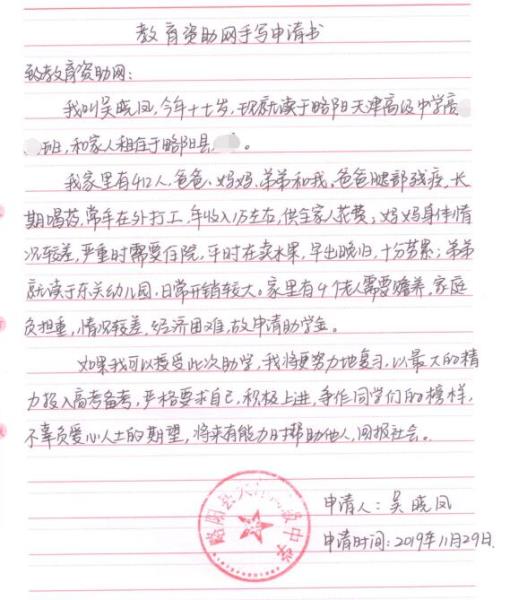 教育资助网手写申请书
致教育资助网：
我叫吴晓凤，今年十七岁，现就读于略阳天津高级中学高
班，和家人租住于略阳县
我家里有4口人，爸爸、妈妈、弟弟和我。爸爸腿部残疾，长
期喝药，常年在外打工，年收入1万左右，供全家人花费；妈妈身体情
况较差，严重时需要住院，平时在卖水果，早出晚归，十分劳累；弟弟
就读于东关幼儿园，日常开销较大。家里有4个老人需要赡养，家庭
负担重，情况较差，经济困难，故申请助学金。
如果我可以接受此次助学，我将更努力地复习，以最大的精
力投入高考备考，严格要求自己，积极上进，争作同学们的榜样，
不辜负爱心人士的期望，将来有能力时帮助他人，回报社会。
略阳县天津高级中学
申请人：吴晓凤
申请时间：2019年11月29日